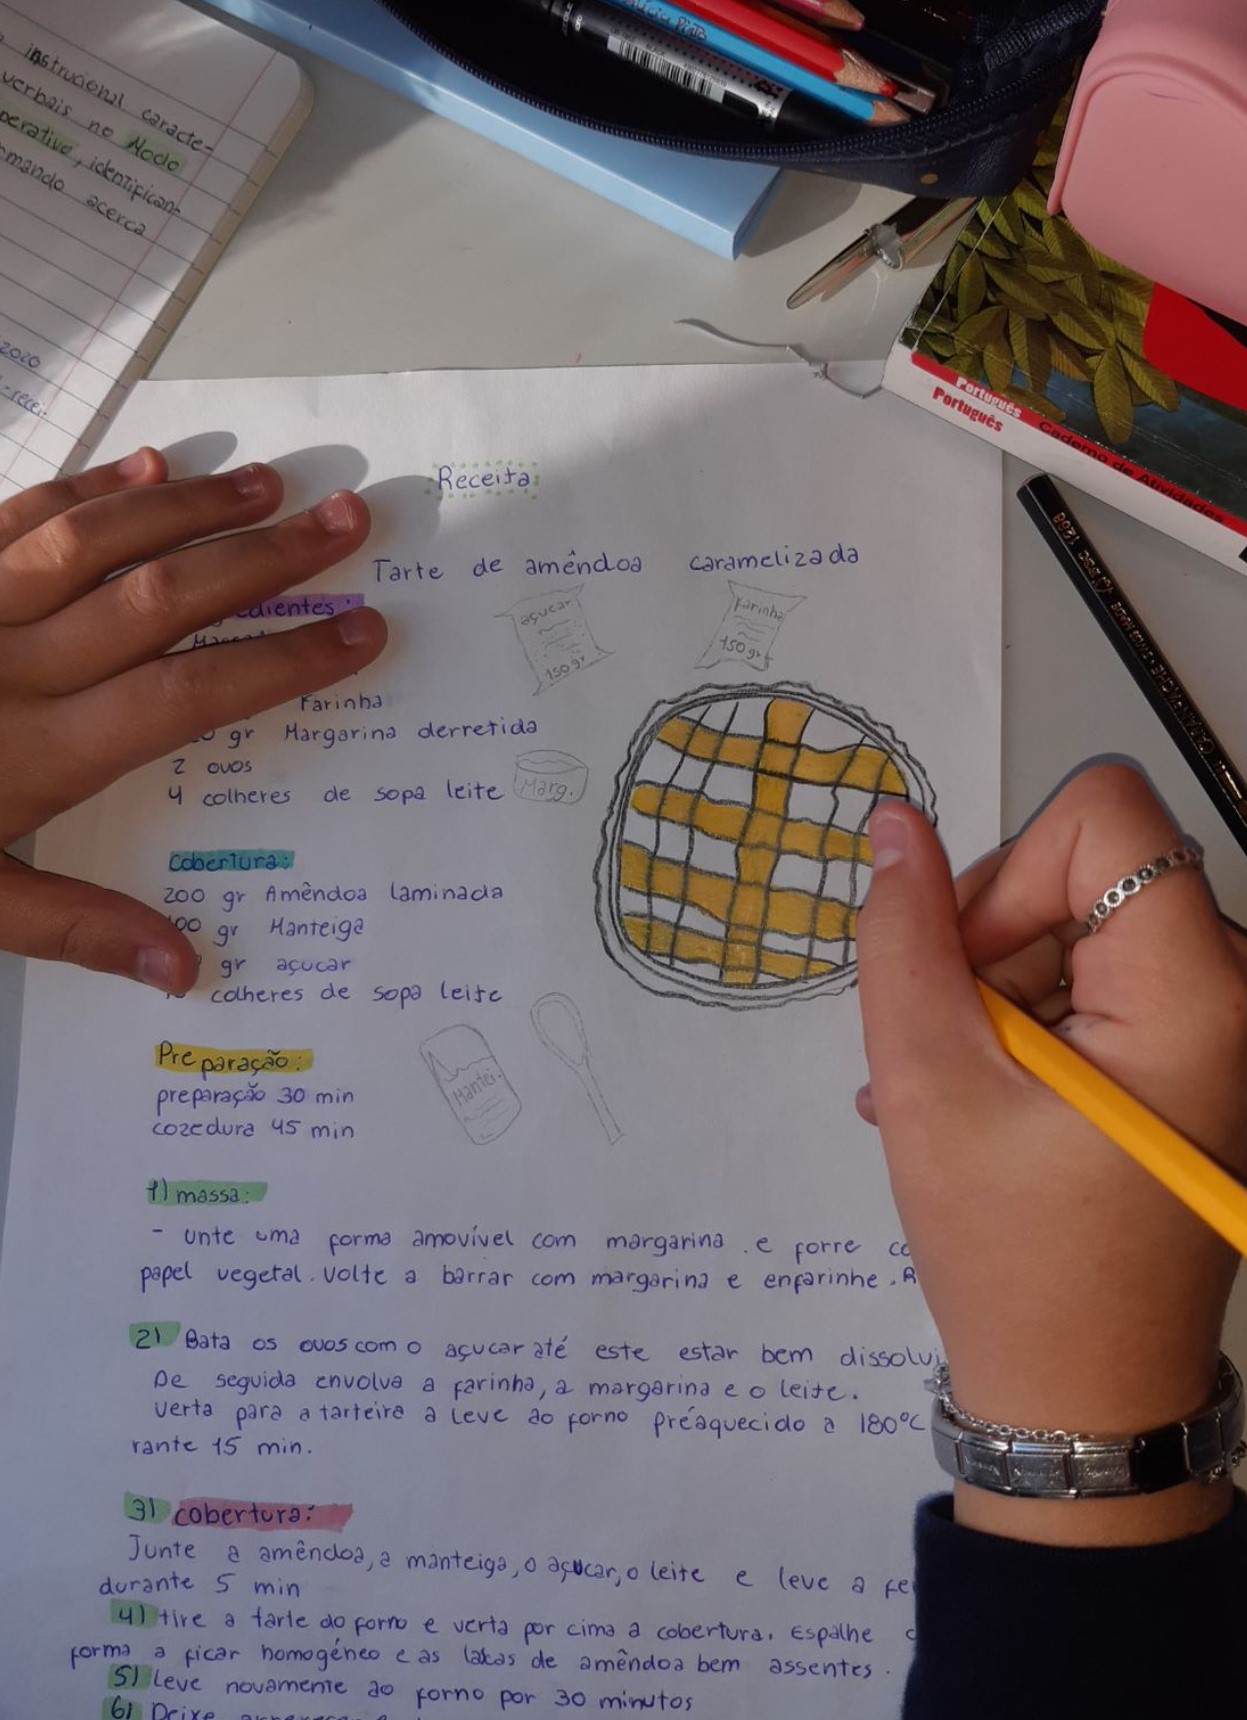 instrucional caracte-
verbais no Modo
perativo, identifican-
mando acerca
2020
-recei-
Português
Português
Caderno de Atividades
Receita
Tarte de amêndoa caramelizada
edientes:
açucar
150 gr
Farinha
150 gr
Farinha
gr Margarina derretida
2 ovos
4 colheres de sopa leite
Marg.
Cobertura:
200 gr Amêndoa laminada
00 gr Manteiga
gr açucar
colheres de sopa leite
Mantei.
Preparação:
preparação 30 min
cozedura 45 min
1) massa:
- unte uma forma amovível com margarina e forre co
papel vegetal. Volte a barrar com margarina e enfarinhe. R
2) Bata os ovos com o açucar até este estar bem dissolvi
De seguida envolva a farinha, a margarina e o leite.
Verta para a tarteira a leve ao forno préaquecido a 180ºC
rante 15 min.
3) cobertura:
Junte a amêndoa, a manteiga, o açucar, o leite e leve a fe
durante 5 min
4) tire a tarte do forno e verta por cima a cobertura. Espalhe
forma a ficar homogéneo e as lakas de amêndoa bem assentes.
5) Leve novamente ao forno por 30 minutos
6) Deixe